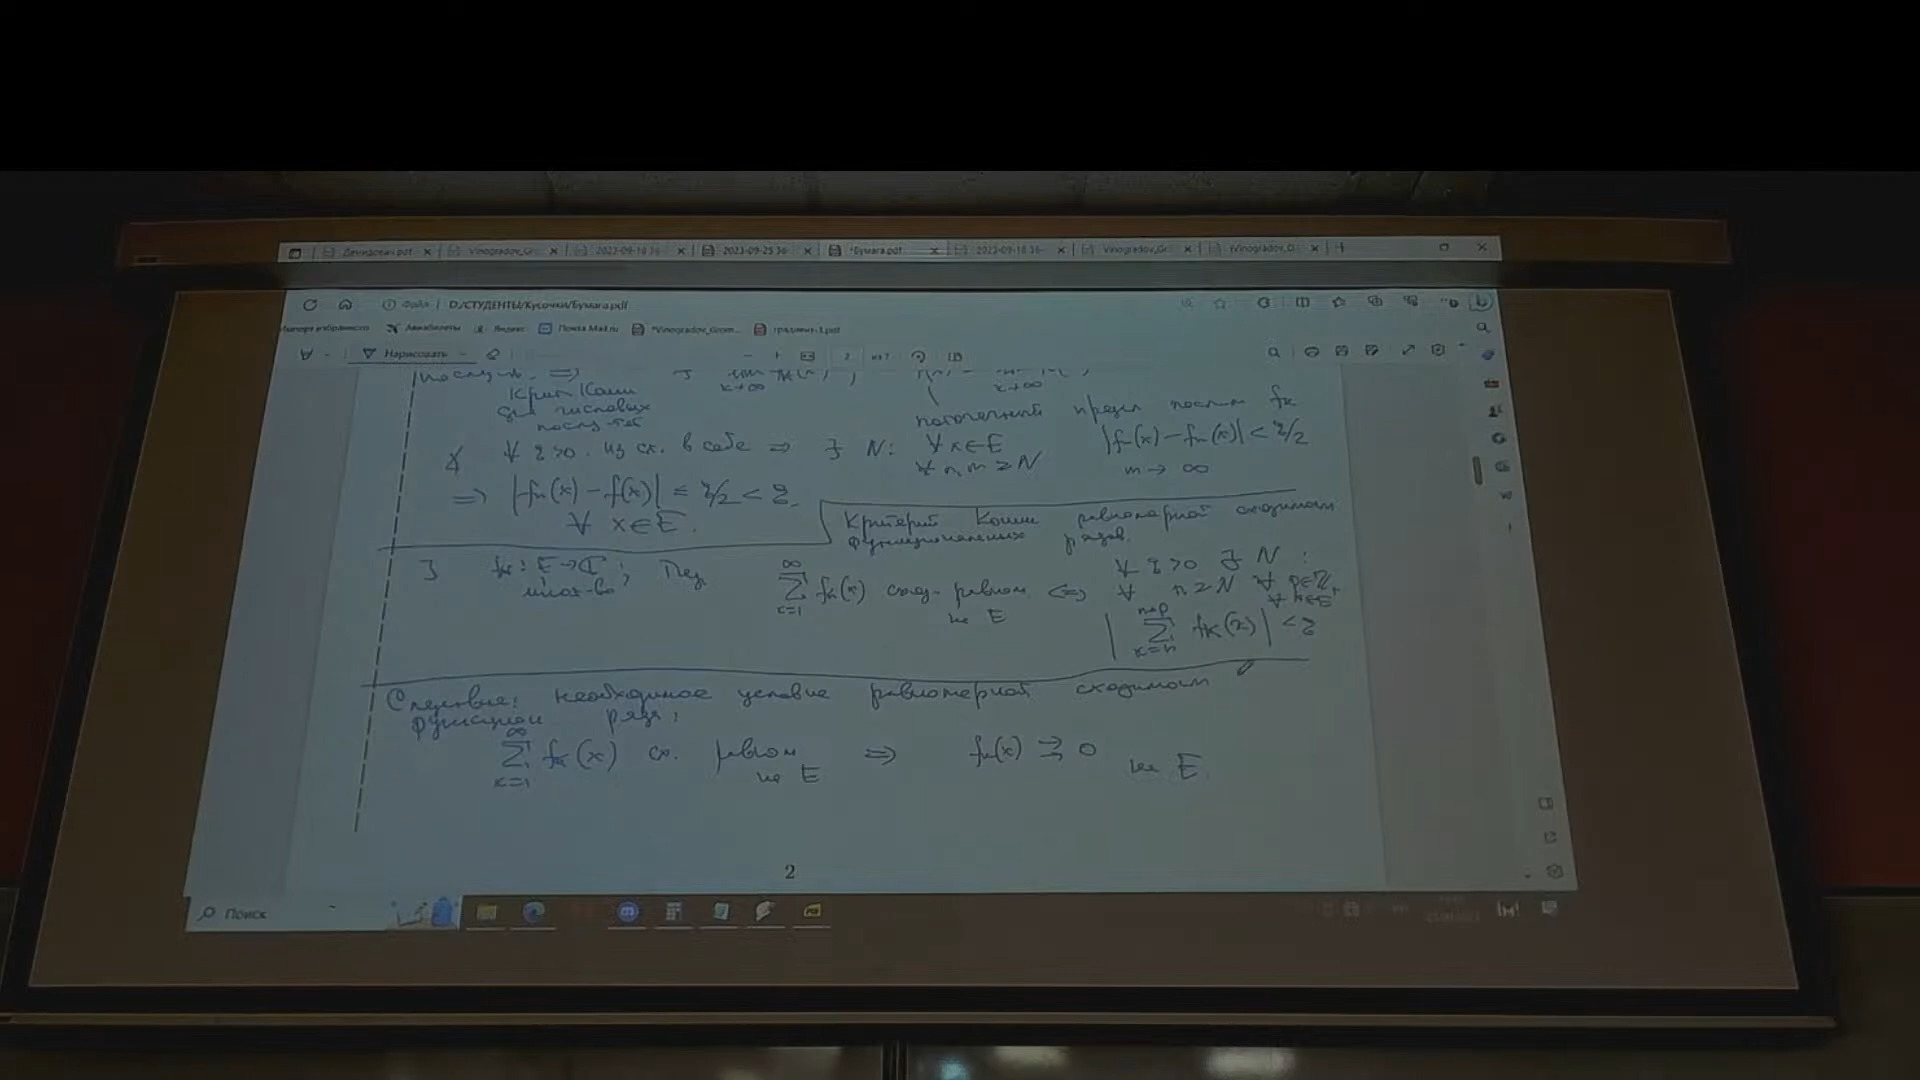 Демидович.pdf Vinogradov_Gr... 2023-09-18 36- 2023-09-25 36 *Бумага.pdf 2023-09-18 36- Vinogradov_Gr...
Файл | D:/СТУДЕНТЫ/Кусочки/Бумага.pdf
Импорт избранного Авиабилеты Яндекс Почта Mail.ru *Vinogradov_Geom... градиент-1.pdf
Нарисовать 2 из 7
⇒ ∃ lim
x→∞
Крит Коши
для числовых
послед-тей
поточечный предел послед fk
∀ ε>0 из сх. в себе ⇒ ∃ N: ∀ x∈E |fn(x) − fm(x)| < ε/2
∀ n,m ≥ N m → ∞
⇒ |fn(x) − f(x)| ≤ ε/2 < ε.
∀ x∈E.
Критерий Коши равномерной сходимости
функциональных рядов.
fk: E→ℂ; Пед ∑ k=1 ∞ fk(x) сход. равном ⇔ ∀ ε>0 ∃ N :
мнж-во на E ∀ n ≥ N ∀ p∈ℤ+ ∀ x∈E
| ∑ k=n n+p fk(x) | < ε
Следствие: необходимое условие равномерной сходимост
функцион ряда:
∑ k=1 ∞ fk(x) сх. равном на E ⇒ fn(x) ⇉ 0 на E
2
Поиск